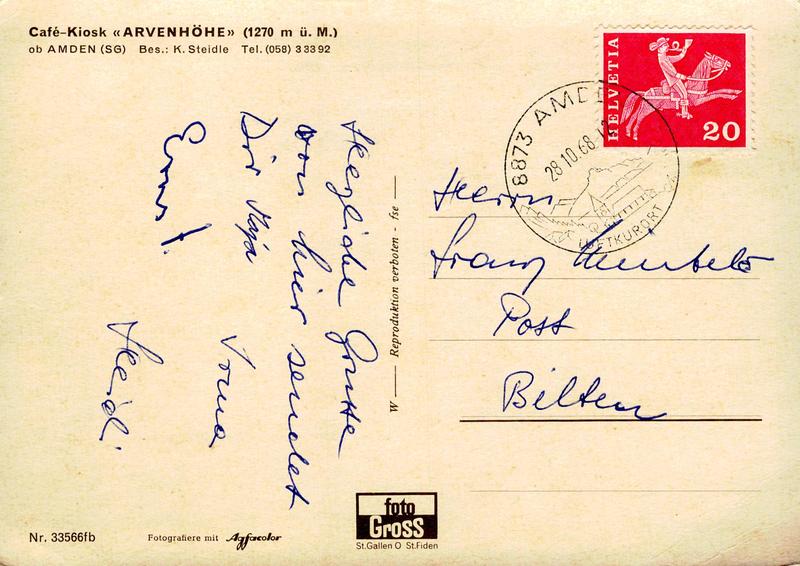 Café-Kiosk «ARVENHÖHE» (1270 m ü. M.)
ob AMDEN (SG) Bes.: K. Steidle Tel. (058) 3 33 92
HELVETIA
20
8873 AMDEN
28.10.68
LUFTKURORT
Herzliche Grüsse
von hier sendet
Dir Maja
Irma
Ernst.
Heidi.
W — Reproduktion verboten - fse —
Herrn
Franz
Post
Bilten
Nr. 33566fb
Fotografiere mit Agfacolor
foto
Gross
St.Gallen O St.Fiden